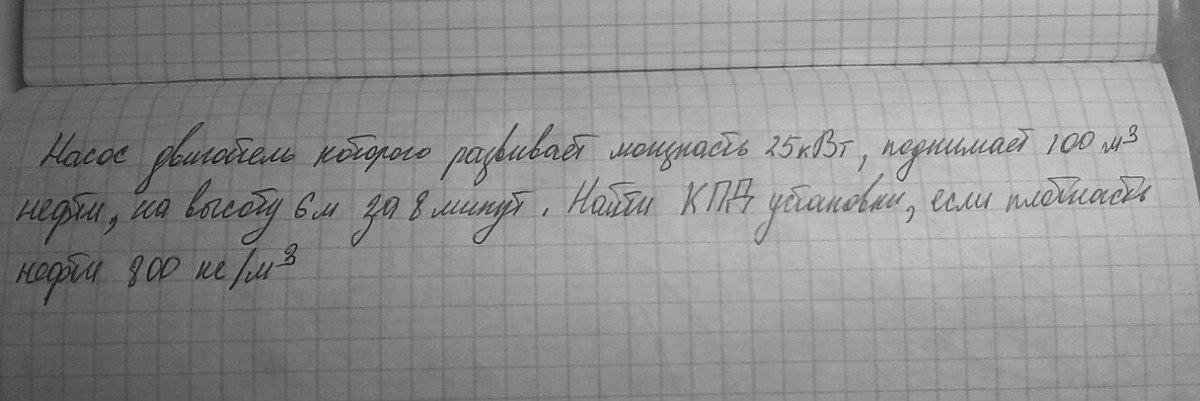 Насос двигатель которого развивает мощность 25кВт, поднимает 100 м³
нефти, на высоту 6м за 8 минут. Найти КПД установки, если плотность
нефти 800 кг/м³